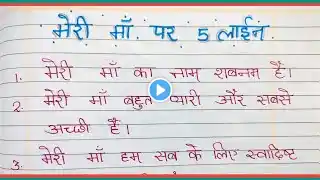 मेरी माँ पर 5 लाईन
1. मेरी माँ का नाम शबनम है।
2. मेरी माँ बहुत प्यारी और सबसे
अच्छी है।
3. मेरी माँ हम सब के लिए स्वादिष्ट